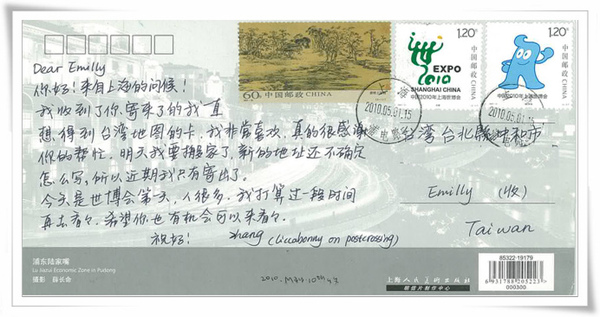 Dear Emilly
你好！来自上海的问候！
我收到了你寄来了的我一直
想得到台湾地图的卡，我非常喜欢，真的很感谢
你的帮忙，明天我要搬家了，新的地址还不确定
怎么写，所以近期我只有寄出了。
今天是世博会第一天，人很多，我打算过一段时间
再去看看，希望你也有机会可以来看看。
祝好！
zhang (liccabonny on postcrossing)
浦东陆家嘴
Lu Jiazui Economic Zone in Pudong
摄影 薛长命
60分
中国邮政 CHINA
1.20元
中国邮政 CHINA
EXPO
2010
SHANGHAI CHINA
中国2010年上海世博会
1.20元
中国邮政 CHINA
中国2010年上海世博会
2010.05.01.15
2010.05.01.15
台湾台北縣
市
Emilly (收)
Taiwan
上海人民美术出版社
85322·19179
6 931788 205223
000300